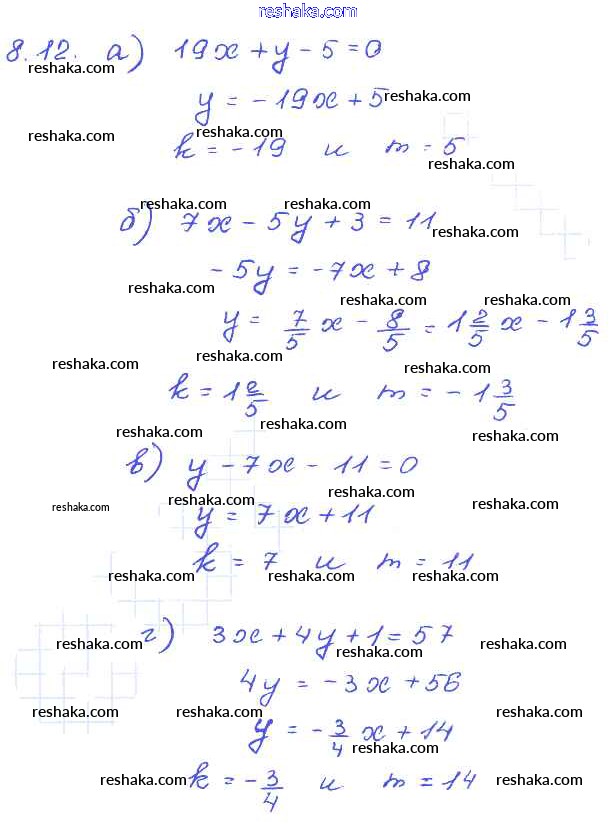 reshaka.com
8.12. а) 19x + y - 5 = 0
reshaka.com
y = -19x + 5 reshaka.com
reshaka.com reshaka.com
k = -19 и m = 5
reshaka.com
reshaka.com reshaka.com
б) 7x - 5y + 3 = 11
reshaka.com
-5y = -7x + 8
reshaka.com
reshaka.com reshaka.com
y = 7/5 x - 8/5 = 1 2/5 x - 1 3/5
reshaka.com reshaka.com
reshaka.com
k = 1 2/5 и m = -1 3/5
reshaka.com reshaka.com reshaka.com
в) y - 7x - 11 = 0
reshaka.com reshaka.com reshaka.com reshaka.com
y = 7x + 11
k = 7 и m = 11
reshaka.com reshaka.com reshaka.com
г) 3x + 4y + 1 = 57
reshaka.com reshaka.com reshaka.com
4y = -3x + 56
reshaka.com reshaka.com reshaka.com
y = -3/4 x + 14
reshaka.com
reshaka.com k = -3/4 и m = 14 reshaka.com